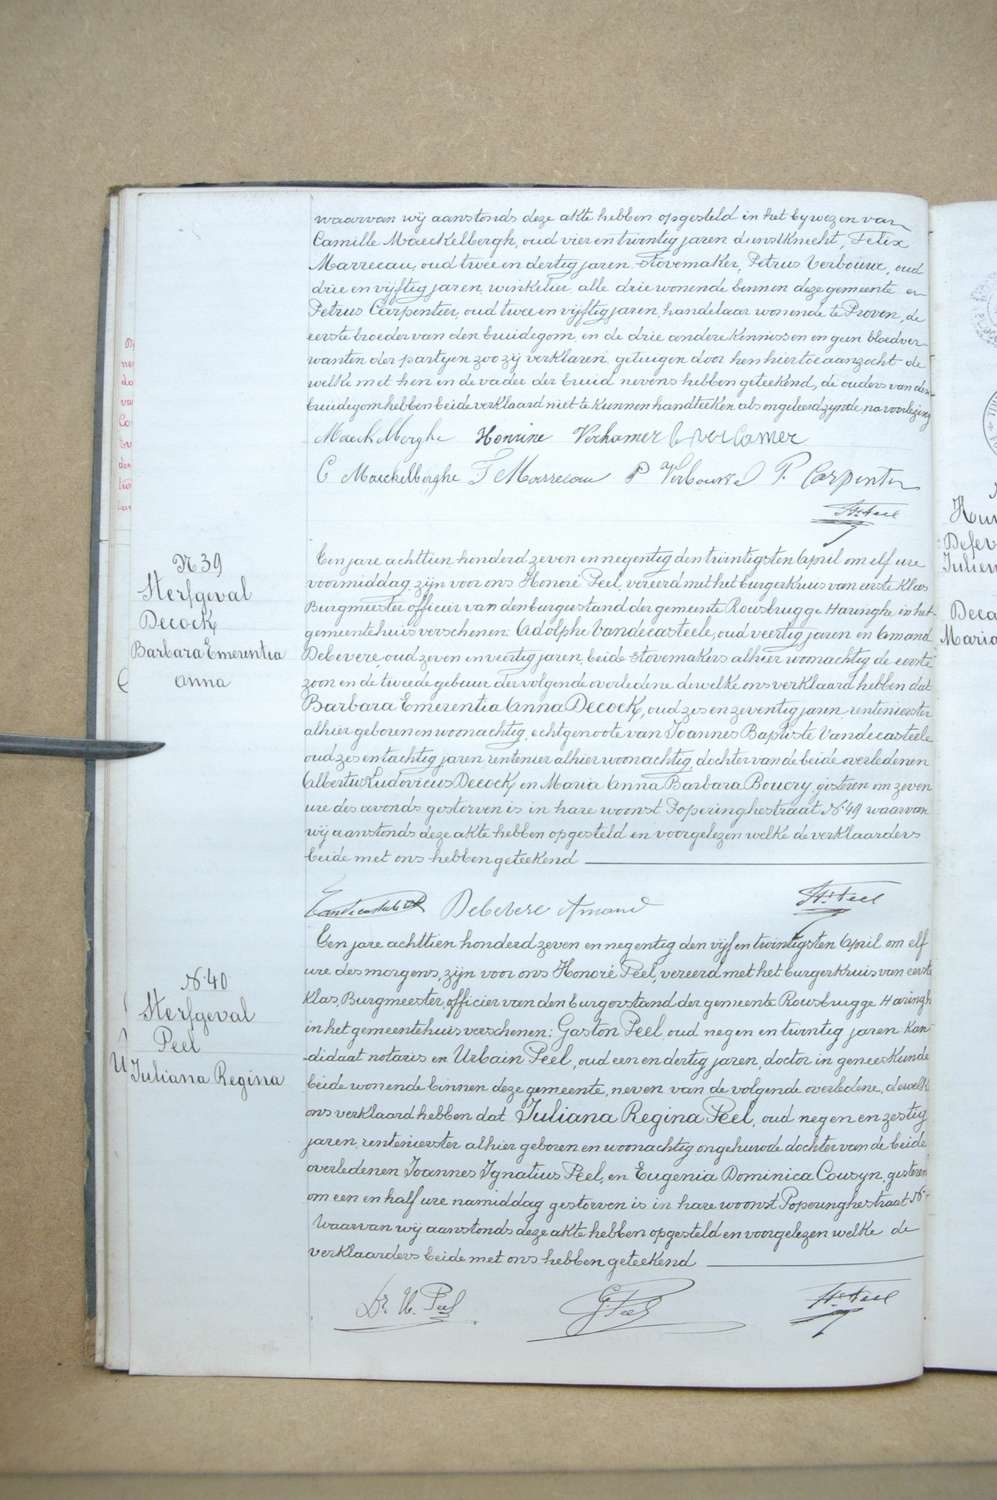 waarvan wij aanstonds deze akte hebben opgesteld in het bijwezen van
Camille Maeckelbergh, oud vier en twintig jaren dienstknecht, Felix
Marrecau, oud twee en dertig jaren, stovemaker, Petrus Verbouwe, oud
drie en vijftig jaren, winkelier, alle drie wonende binnen deze gemeente en
Petrus Carpentier, oud twee en vijftig jaren, handelaar wonende te Proven, de
eerste broeder van den bruidegom, en de drie andere kennissen en geen bloedver-
wanten der partyen zoo zij verklaren, getuigen door hen hiertoe aanzocht de
welke met hen en de vader der bruid nevens hebben geteekend, de ouders van den
bruidegom hebben beide verklaard niet te kunnen handteeken als ongeleerd zynde na voorlezing
Maeckelberghe Honrine Verhamer
C Maeckelberghe F Marrecau P Verbouwe P. Carpentier
Hré Peel
N 39
Sterfgeval
Decock
Barbara Emerentia
Anna
Een jare achttien honderd zeven en negentig den twintigsten April om elf ure
voormiddag, zijn voor ons Honoré Peel, vereerd met het burgerkruis van eerste klas
Burgmeester officier van den burgerstand der gemeente Rousbrugge Haringhe in het
gemeentehuis verschenen: Adolphe Vandecasteele, oud veertig jaren en Amand
Debevere oud zeven en veertig jaren, beide stovemakers alhier woonachtig de eerste
zoon en de tweede gebuur der volgende overledene dewelke ons verklaard hebben dat
Barbara Emerentia Anna Decock, oud zes en zeventig jaren, rentenierster
alhier geboren en woonachtig, echtgenoote van Joannes Baptiste Vandecasteele
oud zes en tachtig jaren rentenier alhier woonachtig, dochter van de beide overledenen
Albertus Ludovicus Decock en Maria Anna Barbara Boucry, gisteren om zeven
ure des avonds gestorven is in hare woonst Poperinghestraat N° 49 waarvan
wij aanstonds deze akte hebben opgesteld en voorgelezen welke de verklaarders
beide met ons hebben geteekend
Vandecasteele Debevere Amand Hré Peel
N° 40
Sterfgeval
Peel
Juliana Regina
Een jare achttien honderd zeven en negentig den vijf en twintigsten April om elf
ure des morgens, zijn voor ons Honoré Peel, vereerd met het burgerkruis van eerste
klas, Burgmeester, officier van den burgerstand der gemeente Rousbrugge Haringh
in het gemeentehuis verschenen: Gaston Peel oud negen en twintig jaren kan
didaat notaris en Urbain Peel, oud een en dertig jaren, doctor in geneeskunde
beide wonende binnen deze gemeente, neven van de volgende overledene, dewelke
ons verklaard hebben dat Juliana Regina Peel, oud negen en zestig
jaren, rentenierster alhier geboren en woonachtig ongehuwde dochter van de beide
overledenen Joannes Ignatius Peel, en Eugenia Dominica Cousyn, gisteren
om een en half ure namiddag gestorven is in hare woonst Poperinghestraat N°
Waarvan wij aanstonds deze akte hebben opgesteld en voorgelezen welke de
verklaarders beide met ons hebben geteekend
Dr. U. Peel G. Peel Hré Peel
Decа
Maria